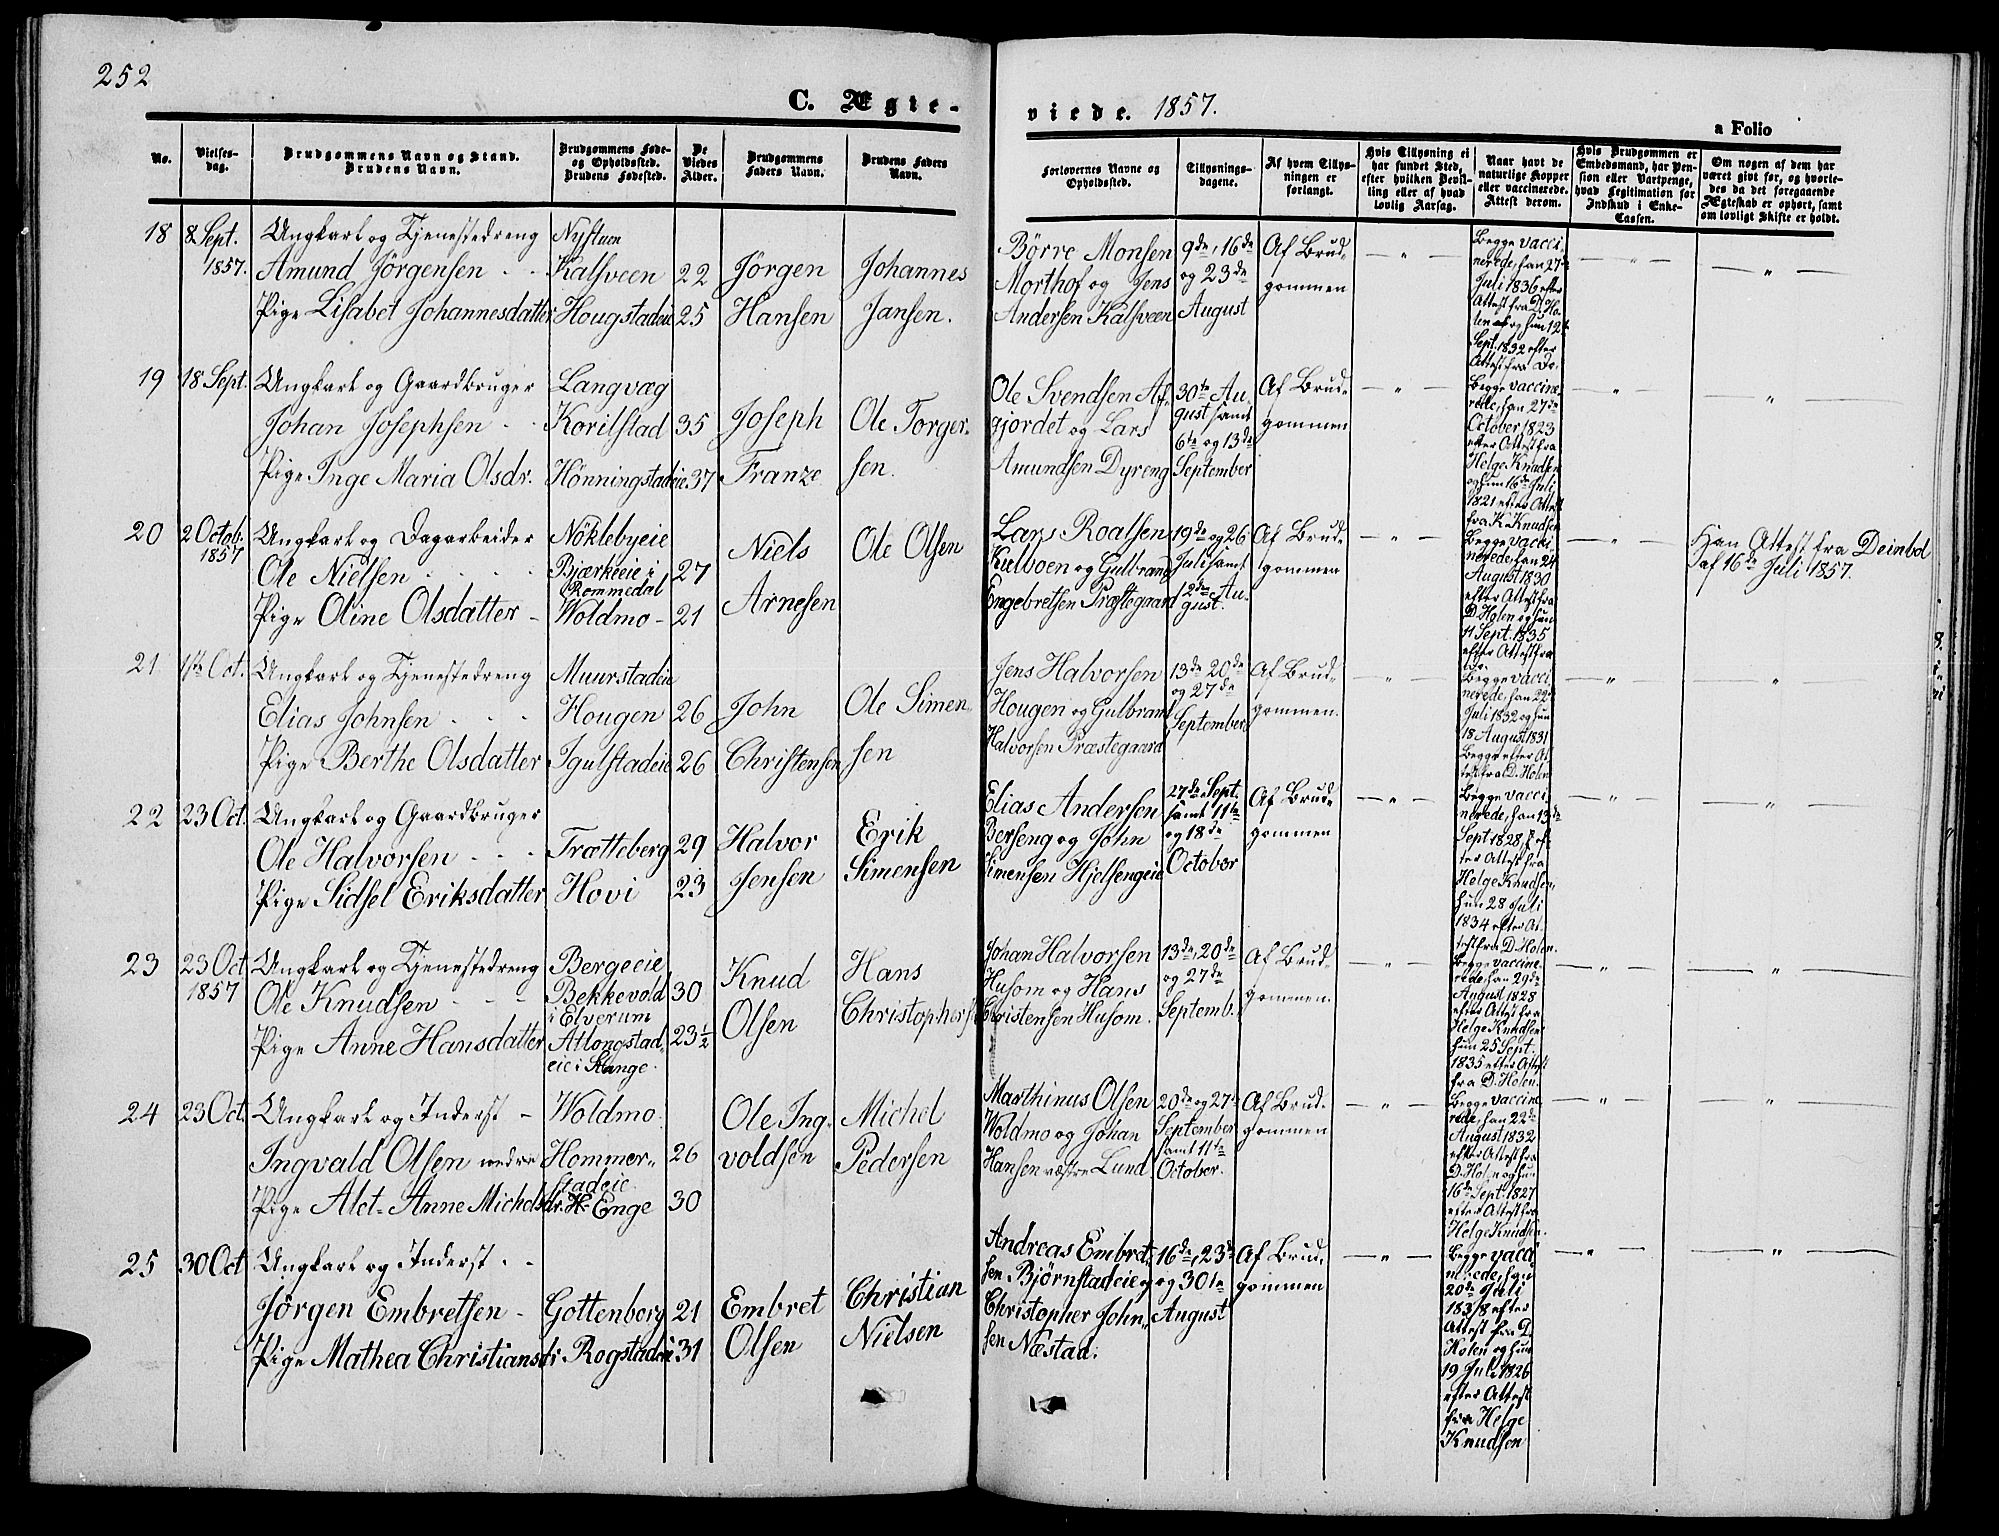 252
C. Ægte-
viede. 1857.
a Folio
No.
Vielses-
dag.
Brudgommens Navn og Stand.
Brudens Navn.
Brudgommens Føde-
og Opholdssted.
Brudens Fødested.
De
Viedes
Alder.
Brudgommens
Faders Navn.
Brudens Faders
Navn.
Forlovernes Navne og
Opholdssted.
Tillysnings-
dagene.
Af hvem Tillys-
ningen er
forlangt.
Hvis Tillysning ei
har fundet Sted,
efter hvilken Bevil-
ling eller af hvad
lovlig Aarsag.
Naar havt de
naturlige Kopper
eller vaccinerede.
Attest derom.
Hvis Brudgommen er
Embedsmand, har Pen-
sion eller Vartpenge,
hvad Legitimation for
Indskud i Enke-
Cassen.
Om nogen af dem har
været givt før, og hvorle-
des da det foregaaende
Ægteskab er ophørt, samt
om lovligt Skifte er holdt.
18
8 Sept.
1857.
Ungkarl og Tjenestedreng
Amund Jörgensen
Pige Lisabet Johannesdatter
Nystuen
Kalsveen
Hougstadeie
22
25
Jörgen
Hansen
Johannes
Jansen.
Börre Monsen
Morthof og Jens
Andersen Kalsveen
9de, 16de
og 23de
August
Af Brud-
gommen
Begge vacci-
nerede, han 27de
Juli 1836 efter
Attest fra D. Ho-
len og hun 12t
Sept. 1832 efter
Attest fra Do.
19
18 Sept.
Ungkarl og Gaardbruger
Johan Josephsen
Pige Inge Maria Olsdr.
Langvæg
Korilstad
Hönningstadeie
35
37
Joseph
Franze
Ole Torger-
sen.
Ole Svendsen Af-
gjordet og Lars
Amundsen Dyreng
30te Au-
gust samt
6te og 13de
September
Af Brud-
gommen
Begge vaccine-
rede, han 27de
October 1823
efter Attest fra
Helge Knudsen
og hun 16de Juli
1821 efter Attest
fra K. Knudsen
20
2 Octob.
1857
Ungkarl og Dagarbeider
Ole Nielsen
Pige Oline Olsdatter
Nöklebyeie
Bjærkeeie i
Rommedal
Woldmo
27
21
Niels
Arnesen
Ole Olsen
Lars Roalsen
Kulboen og Gulbrand
Engebretsen Præstegaard
19de og 26
Juli samt
12de Au-
gust.
Af Brud-
gommen
Begge vacci-
nerede, han 24
August 1830
efter Attest fra
D. Holen og hun
11 Sept. 1835
efter Attest fra
Do.
Han Attest fra Deinbol
af 16de Juli 1857.
21
1ste Oct.
Ungkarl og Tjenestedreng
Elias Johnsen
Pige Berthe Olsdatter
Muurstadeie
Hougen
Igulstadeie
26
26
John
Christensen
Ole Simen-
sen
Jens Halvorsen
Hougen og Gulbrand
Halvorsen Præstegaard
13de 20de
og 27de
September
Af Brud-
gommen.
Begge vacci-
nerede, han 22de
Juli 1832 og hun
18 August 1831
Begge efter At-
test fra D. Holen
22
23 Oct.
Ungkarl og Gaardbruger
Ole Halvorsen
Pige Sidsel Eriksdatter
Trætteberg
Hovi
29
23
Halvor
Jensen
Erik
Simensen
Elias Andersen
Berseng og John
Simensen Hjelsengeie
27de Sept.
samt 11te
og 18de
October
Af Brud-
gommen
Begge vacci-
nerede, han 13de
Sept 1828 ef-
ter Attest fra
Helge Knudsen,
hun 28 Juli
1834 efter At-
test fra D. Holen.
23
23 Oct
1857
Ungkarl og Tjenestedreng
Ole Knudsen
Pige Anne Hansdatter
Bergeeie
Bekkevold
i Elverum
Atlongstad-
eie i Stange.
30
23½
Knud
Olsen
Hans
Christophers
Johan Halvorsen
Husom og Hans
Christensen Husom.
13de, 20de
og 27de
Septemb.
Af Brud-
gommen.
Begge vaccine-
rede, han 29de
August 1828
efter Attest fra
Helge Knudsen
hun 25 Sept.
1835 efter Attest
fra D. Holen.
24
23 Oct.
Ungkarl og Inderst
Ingvald Olsen nedre
Pige Alet-Anne Michelsdr.
Woldmo
Hommer-
stadeie
H. Enge
26
30
Ole Ing-
voldsen
Michel
Pedersen
Marthinus Olsen
Woldmo og Johan
Hansen vestre Lund
20de og 27de
September
samt 11te
October.
Af Brud-
gommen
Begge vaccine-
rede, han 22de
August 1832
efter Attest fra
D. Holen og hun
16de Sept. 1827
efter Attest fra
Helge Knudsen.
25
30 Oct
Ungkarl og Inderst
Jörgen Embretsen
Pige Mathea Christiansd.
Gottenborg
Rogstadeie
21
31
Embret
Olsen
Christian
Nielsen
Andreas Embret-
sen Bjørnstadeie og
Christopher John-
sen Næstad.
16de, 23de
og 30te
August
Af Brud-
gommen
Begge vacci-
nerede, han
20de Juli
1838 efter
Attest fra D.
Holen og hun
19 Juli 1826
efter Attest
fra Helge
Knudsen